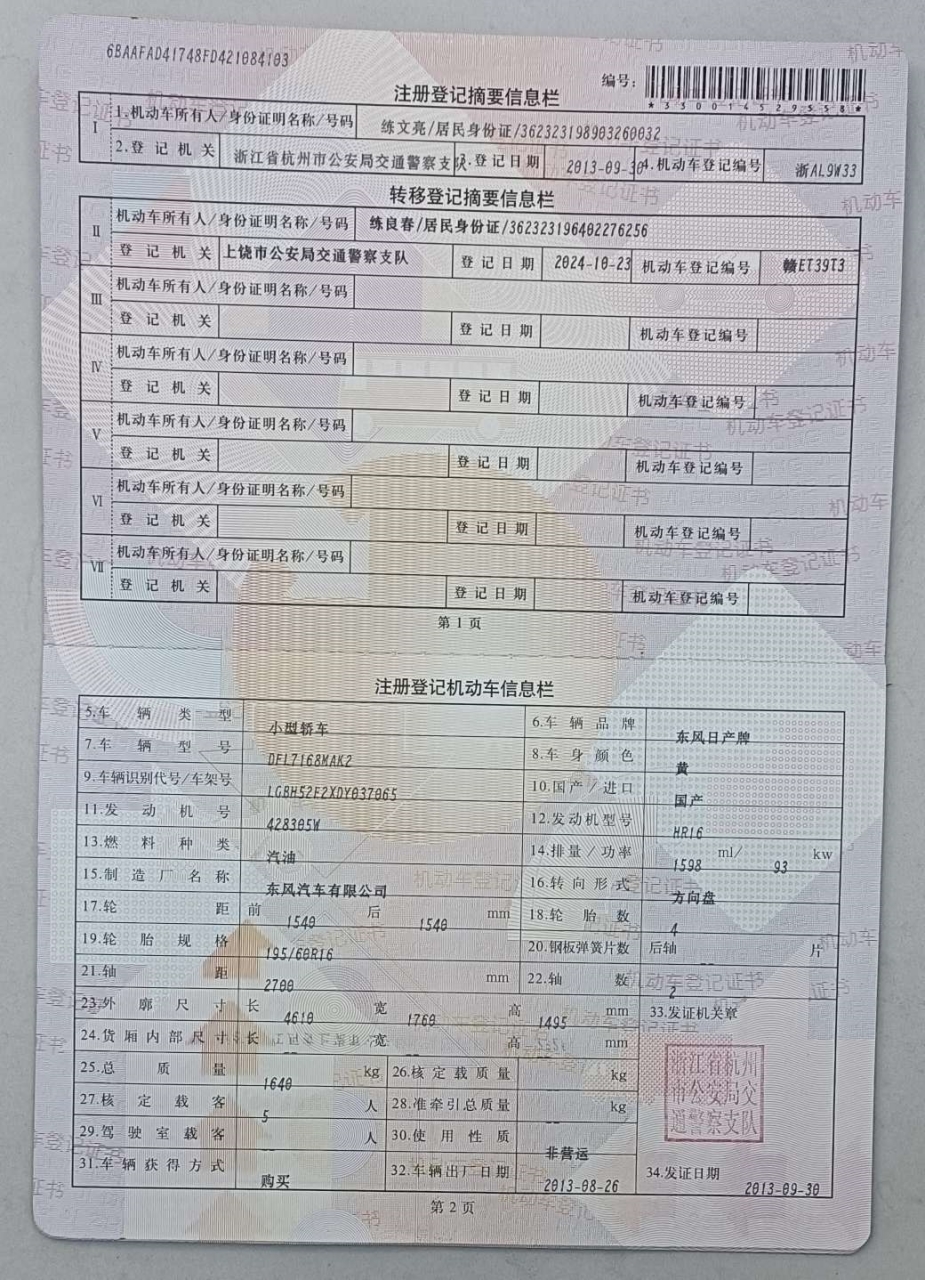 6BAAFAD41748FD421084103
编号:
*330014529558*
注册登记摘要信息栏
I 1.机动车所有人/身份证明名称/号码 练文亮/居民身份证/362323198903260032
2.登记机关 浙江省杭州市公安局交通警察支队 3.登记日期 2013-09-30 4.机动车登记编号 浙AL9W33
转移登记摘要信息栏
II 机动车所有人/身份证明名称/号码 练良春/居民身份证/362323196402276256
登记机关 上饶市公安局交通警察支队 登记日期 2024-10-23 机动车登记编号 赣ET39T3
III 机动车所有人/身份证明名称/号码
登记机关 登记日期 机动车登记编号
IV 机动车所有人/身份证明名称/号码
登记机关 登记日期 机动车登记编号
V 机动车所有人/身份证明名称/号码
登记机关 登记日期 机动车登记编号
VI 机动车所有人/身份证明名称/号码
登记机关 登记日期 机动车登记编号
VII 机动车所有人/身份证明名称/号码
登记机关 登记日期 机动车登记编号
第1页
注册登记机动车信息栏
5.车辆类型 小型轿车 6.车辆品牌 东风日产牌
7.车辆型号 DFL7168MAK2 8.车身颜色 黄
9.车辆识别代号/车架号 LGBH52E2XDY037065 10.国产/进口 国产
11.发动机号 428305W 12.发动机型号 HR16
13.燃料种类 汽油 14.排量/功率 1598 ml/ 93 kw
15.制造厂名称 东风汽车有限公司 16.转向形式 方向盘
17.轮距 前 1540 后 1540 mm 18.轮胎数 4
19.轮胎规格 195/60R16 20.钢板弹簧片数 后轴 -- 片
21.轴距 2700 mm 22.轴数 2
23.外廓尺寸 长 4610 宽 1760 高 1495 mm 33.发证机关章
24.货厢内部尺寸 长 -- 宽 -- 高 -- mm
浙江省杭州
市公安局交
通警察支队
25.总质量 1640 kg 26.核定载质量 -- kg
27.核定载客 5 人 28.准牵引总质量 -- kg
29.驾驶室载客 -- 人 30.使用性质 非营运
31.车辆获得方式 购买 32.车辆出厂日期 2013-08-26 34.发证日期 2013-09-30
第2页